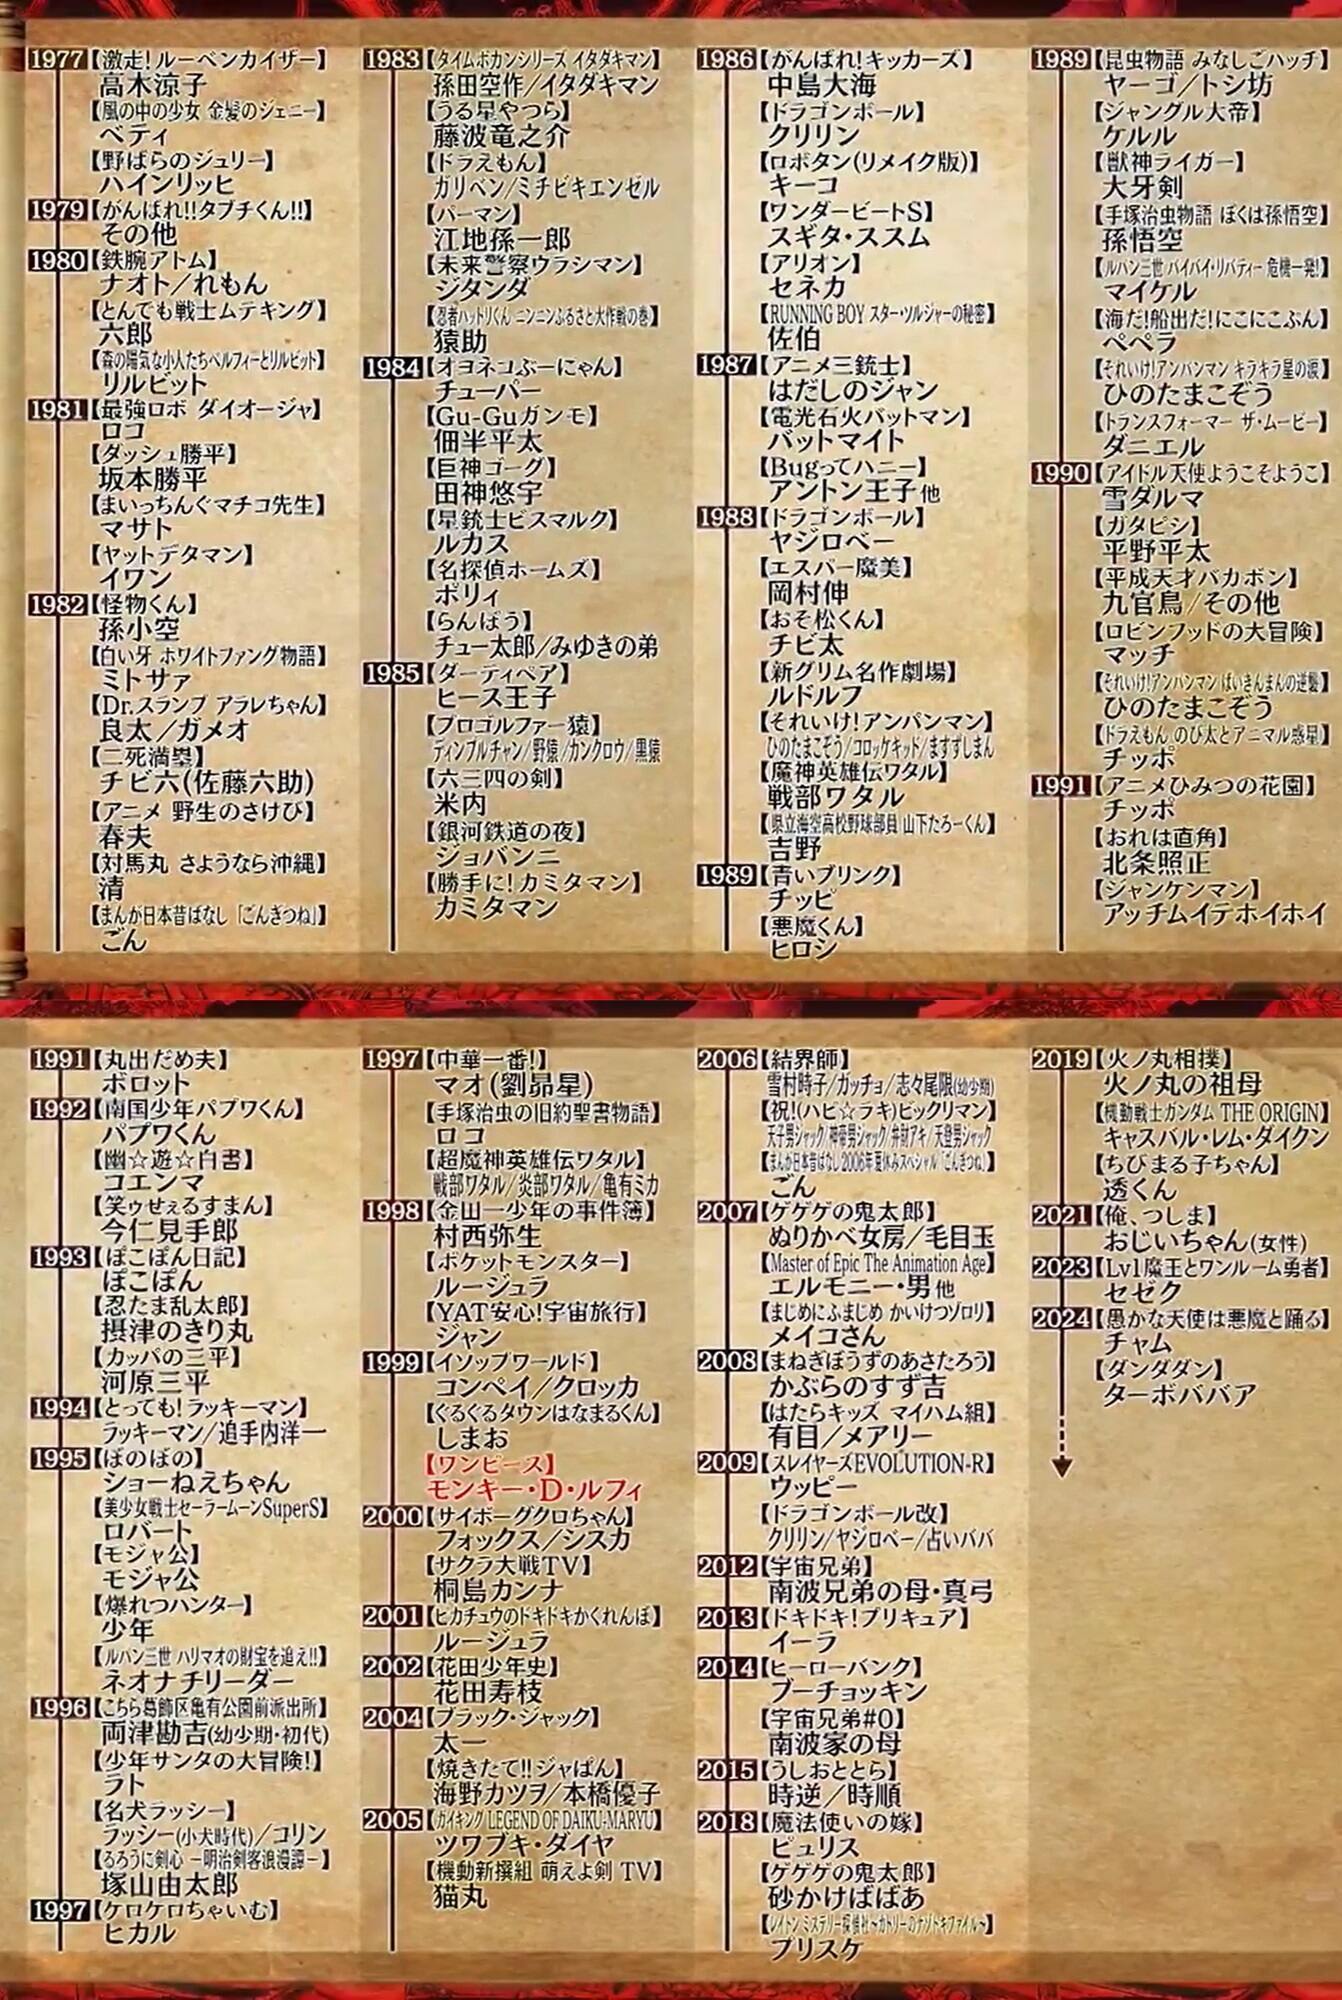 1977【激走!ルーベンカイザー】
高木涼子
【風の中の少女 金髪のジェニー】
ベティ
【野ばらのジュリー】
ハインリッヒ
1979【がんばれ!!タブチくん!!】
その他
1980【鉄腕アトム】
ナオト/れもん
【とんでも戦士ムテキング】
六郎
【森の陽気な小人たちベルフィーとリルビット】
リルビット
1981【最強ロボ ダイオージャ】
ロコ
【ダッシュ勝平】
坂本勝平
【まいっちんぐマチコ先生】
マサト
【ヤットデタマン】
イワン
1982【怪物くん】
孫小空
【白い牙 ホワイトファング物語】
ミトサァ
【Dr.スランプ アラレちゃん】
良太/ガメオ
【二死満塁】
チビ六(佐藤六助)
【アニメ 野生のさけび】
春夫
【対馬丸 さようなら沖縄】
清
【まんが日本昔ばなし「ごんぎつね」】
ごん
1983【タイムボカンシリーズ イタダキマン】
孫田空作/イタダキマン
【うる星やつら】
藤波竜之介
【ドラえもん】
ガリベン/ミチビキエンゼル
【パーマン】
江地孫一郎
【未来警察ウラシマン】
ジタンダ
【忍者ハットリくん ニンニンふるさと大作戦の巻】
猿助
1984【オヨネコぶーにゃん】
チューパー
【Gu-Guガンモ】
佃半平太
【巨神ゴーグ】
田神悠宇
【星銃士ビスマルク】
ルカス
【名探偵ホームズ】
ポリィ
【らんぽう】
チュー太郎/みゆきの弟
1985【ダーティペア】
ヒース王子
【プロゴルファー猿】
ディンプルチャン/野猿/カンクロウ/黒猿
【六三四の剣】
米内
【銀河鉄道の夜】
ジョバンニ
【勝手に!カミタマン】
カミタマン
1986【がんばれ!キッカーズ】
中島大海
【ドラゴンボール】
クリリン
【ロボタン(リメイク版)】
キーコ
【ワンダービートS】
スギタ・ススム
【アリオン】
セネカ
【RUNNING BOY スター・ソルジャーの秘密】
佐伯
1987【アニメ三銃士】
はだしのジャン
【電光石火バットマン】
バットマイト
【Bugってハニー】
アントン王子他
1988【ドラゴンボール】
ヤジロベー
【エスパー魔美】
岡村伸
【おそ松くん】
チビ太
【新グリム名作劇場】
ルドルフ
【それいけ!アンパンマン】
ひのたまこぞう/コロッケキッド/ますずしまん
【魔神英雄伝ワタル】
戦部ワタル
【県立海空高校野球部員 山下たろーくん】
吉野
1989【青いブリンク】
チッピ
【悪魔くん】
ヒロシ
1989【昆虫物語 みなしごハッチ】
ヤーゴ/トシ坊
【ジャングル大帝】
ケルル
【獣神ライガー】
大牙剣
【手塚治虫物語 ぼくは孫悟空】
孫悟空
【ルパン三世 バイバイ・リバティー 危機一発!】
マイケル
【海だ!船出だ!にこにこぷん】
ペペラ
【それいけ!アンパンマン キラキラ星の涙】
ひのたまこぞう
【トランスフォーマー ザ・ムービー】
ダニエル
1990【アイドル天使ようこそようこ】
雪ダルマ
【ガタピシ】
平野平太
【平成天才バカボン】
九官鳥/その他
【ロビンフッドの大冒険】
マッチ
【それいけ!アンパンマン ばいきんまんの逆襲】
ひのたまこぞう
【ドラえもん のび太とアニマル惑星】
チッポ
1991【アニメひみつの花園】
チッポ
【おれは直角】
北条照正
【ジャンケンマン】
アッチムイテホイホイ
1991【丸出だめ夫】
ボロット
1992【南国少年パプワくん】
パプワくん
【幽☆遊☆白書】
コエンマ
【笑ゥせぇるすまん】
今仁見手郎
1993【ぽこぽん日記】
ぽこぽん
【忍たま乱太郎】
摂津のきり丸
【カッパの三平】
河原三平
1994【とっても!ラッキーマン】
ラッキーマン/追手内洋一
1995【ぼのぼの】
ショーねえちゃん
【美少女戦士セーラームーンSuperS】
ロバート
【モジャ公】
モジャ公
【爆れつハンター】
少年
【ルパン三世 ハリマオの財宝を追え!!】
ネオナチリーダー
1996【こちら葛飾区亀有公園前派出所】
両津勘吉(幼少期・初代)
【少年サンタの大冒険!】
ラト
【名犬ラッシー】
ラッシー(小犬時代)/コリン
【るろうに剣心 −明治剣客浪漫譚−】
塚山由太郎
1997【ケロケロちゃいむ】
ヒカル
1997【中華一番!】
マオ(劉昴星)
【手塚治虫の旧約聖書物語】
ロコ
【超魔神英雄伝ワタル】
戦部ワタル/炎部ワタル/亀有ミカ
1998【金田一少年の事件簿】
村西弥生
【ポケットモンスター】
ルージュラ
【YAT安心!宇宙旅行】
ジャン
1999【イソップワールド】
コンペイ/クロッカ
【ぐるぐるタウンはなまるくん】
しまお
【ワンピース】
モンキー・D・ルフィ
2000【サイボーグクロちゃん】
フォックス/シスカ
【サクラ大戦TV】
桐島カンナ
2001【ピカチュウのドキドキかくれんぼ】
ルージュラ
2002【花田少年史】
花田寿枝
2004【ブラック・ジャック】
太一
【焼きたて!!ジャぱん】
海野カツヲ/本橋優子
2005【ガイキング LEGEND OF DAIKU-MARYU】
ツワブキ・ダイヤ
【機動新撰組 萌えよ剣 TV】
猫丸
2006【結界師】
雪村時子/ガッチョ/志々尾限(幼少期)
【祝!(ハピ☆ラキ)ビックリマン】
天子男ジャック/神帝男ジャック/弁財アキ/天登男ジャック
【まんが日本昔ばなし2006年夏休みスペシャル「ごんぎつね」】
ごん
2007【ゲゲゲの鬼太郎】
ぬりかべ女房/毛目玉
【Master of Epic The Animation Age】
エルモニー・男他
【まじめにふまじめ かいけつゾロリ】
メイコさん
2008【まねきぼうずのあさたろう】
かぶらのすず吉
【はたらキッズ マイハム組】
有目/メアリー
2009【スレイヤーズEVOLUTION-R】
ウッピー
【ドラゴンボール改】
クリリン/ヤジロベー/占いババ
2012【宇宙兄弟】
南波兄弟の母・真弓
2013【ドキドキ!プリキュア】
イーラ
2014【ヒーローバンク】
ブーチョッキン
【宇宙兄弟#0】
南波家の母
2015【うしおととら】
時逆/時順
2018【魔法使いの嫁】
ピュリス
【ゲゲゲの鬼太郎】
砂かけばばあ
【レイトン ミステリー探偵社〜カトリーのナゾトキファイル〜】
プリスケ
2019【火ノ丸相撲】
火ノ丸の祖母
【機動戦士ガンダム THE ORIGIN】
キャスバル・レム・ダイクン
【ちびまる子ちゃん】
透くん
2021【俺、つしま】
おじいちゃん(女性)
2023【Lv1魔王とワンルーム勇者】
ゼゼク
2024【愚かな天使は悪魔と踊る】
チャム
【ダンダダン】
ターボババア